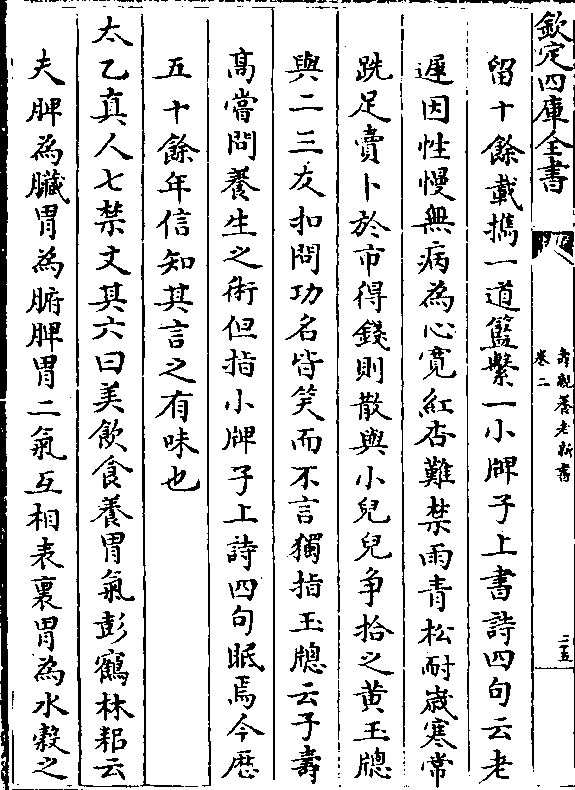 欽定四庫全書
壽親養老新書
卷二
三五
留十餘載攜一道籃繫一小牌子上書詩四句云老
遲因性慢無病為心寛紅杏難禁雨青松耐嵗寒常
跣足賣卜於市得錢則散與小兒兒爭拾之黄玉牕
與二三友扣問功名皆笑而不言獨指玉牕云子壽
髙嘗問養生之術但指小牌子上詩四句眡焉今歴
五十餘年信知其言之有味也
太乙真人七禁文其六曰美飲食養胃氣彭鶴林耜云
夫脾為臟胃為腑脾胃二氣互相表裏胃為水穀之